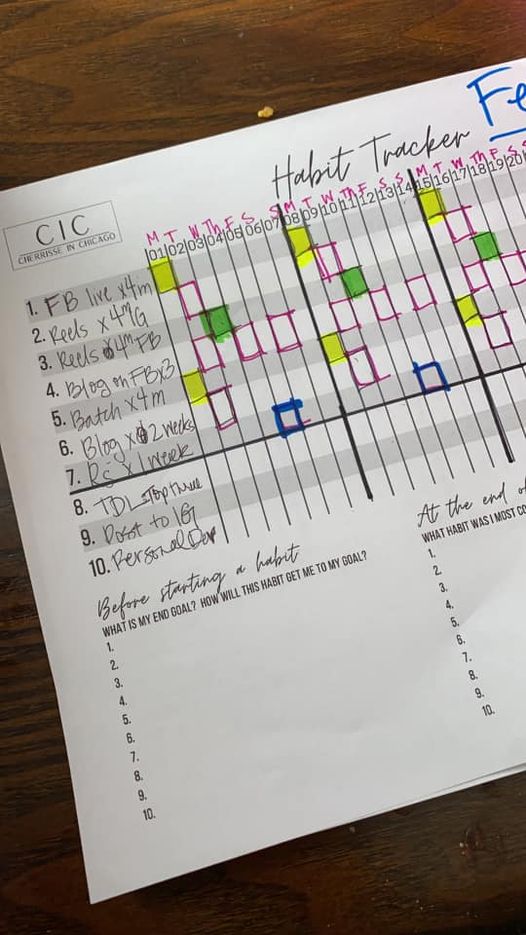 Fe
Habit Tracker
CIC
CHERRISSE IN CHICAGO
M T W Th F S S M T W Th F S S M T W Th F S S
01 02 03 04 05 06 07 08 09 10 11 12 13 14 15 16 17 18 19 20
1. FB live x4m
2. Reels x 4m IG
3. Reels 4m FB
4. Blog on FBx3
5. Batch x4m
6. Blog x 2 weeks
7. x 1 week
8. TDL - Top three
9. Post to IG
10. Personal Dev
Before starting a habit
WHAT IS MY END GOAL? HOW WILL THIS HABIT GET ME TO MY GOAL?
1.
2.
3.
4.
5.
6.
7.
8.
9.
10.
At the end of
WHAT HABIT WAS I MOST CO
1.
2.
3.
4.
5.
6.
7.
8.
9.
10.